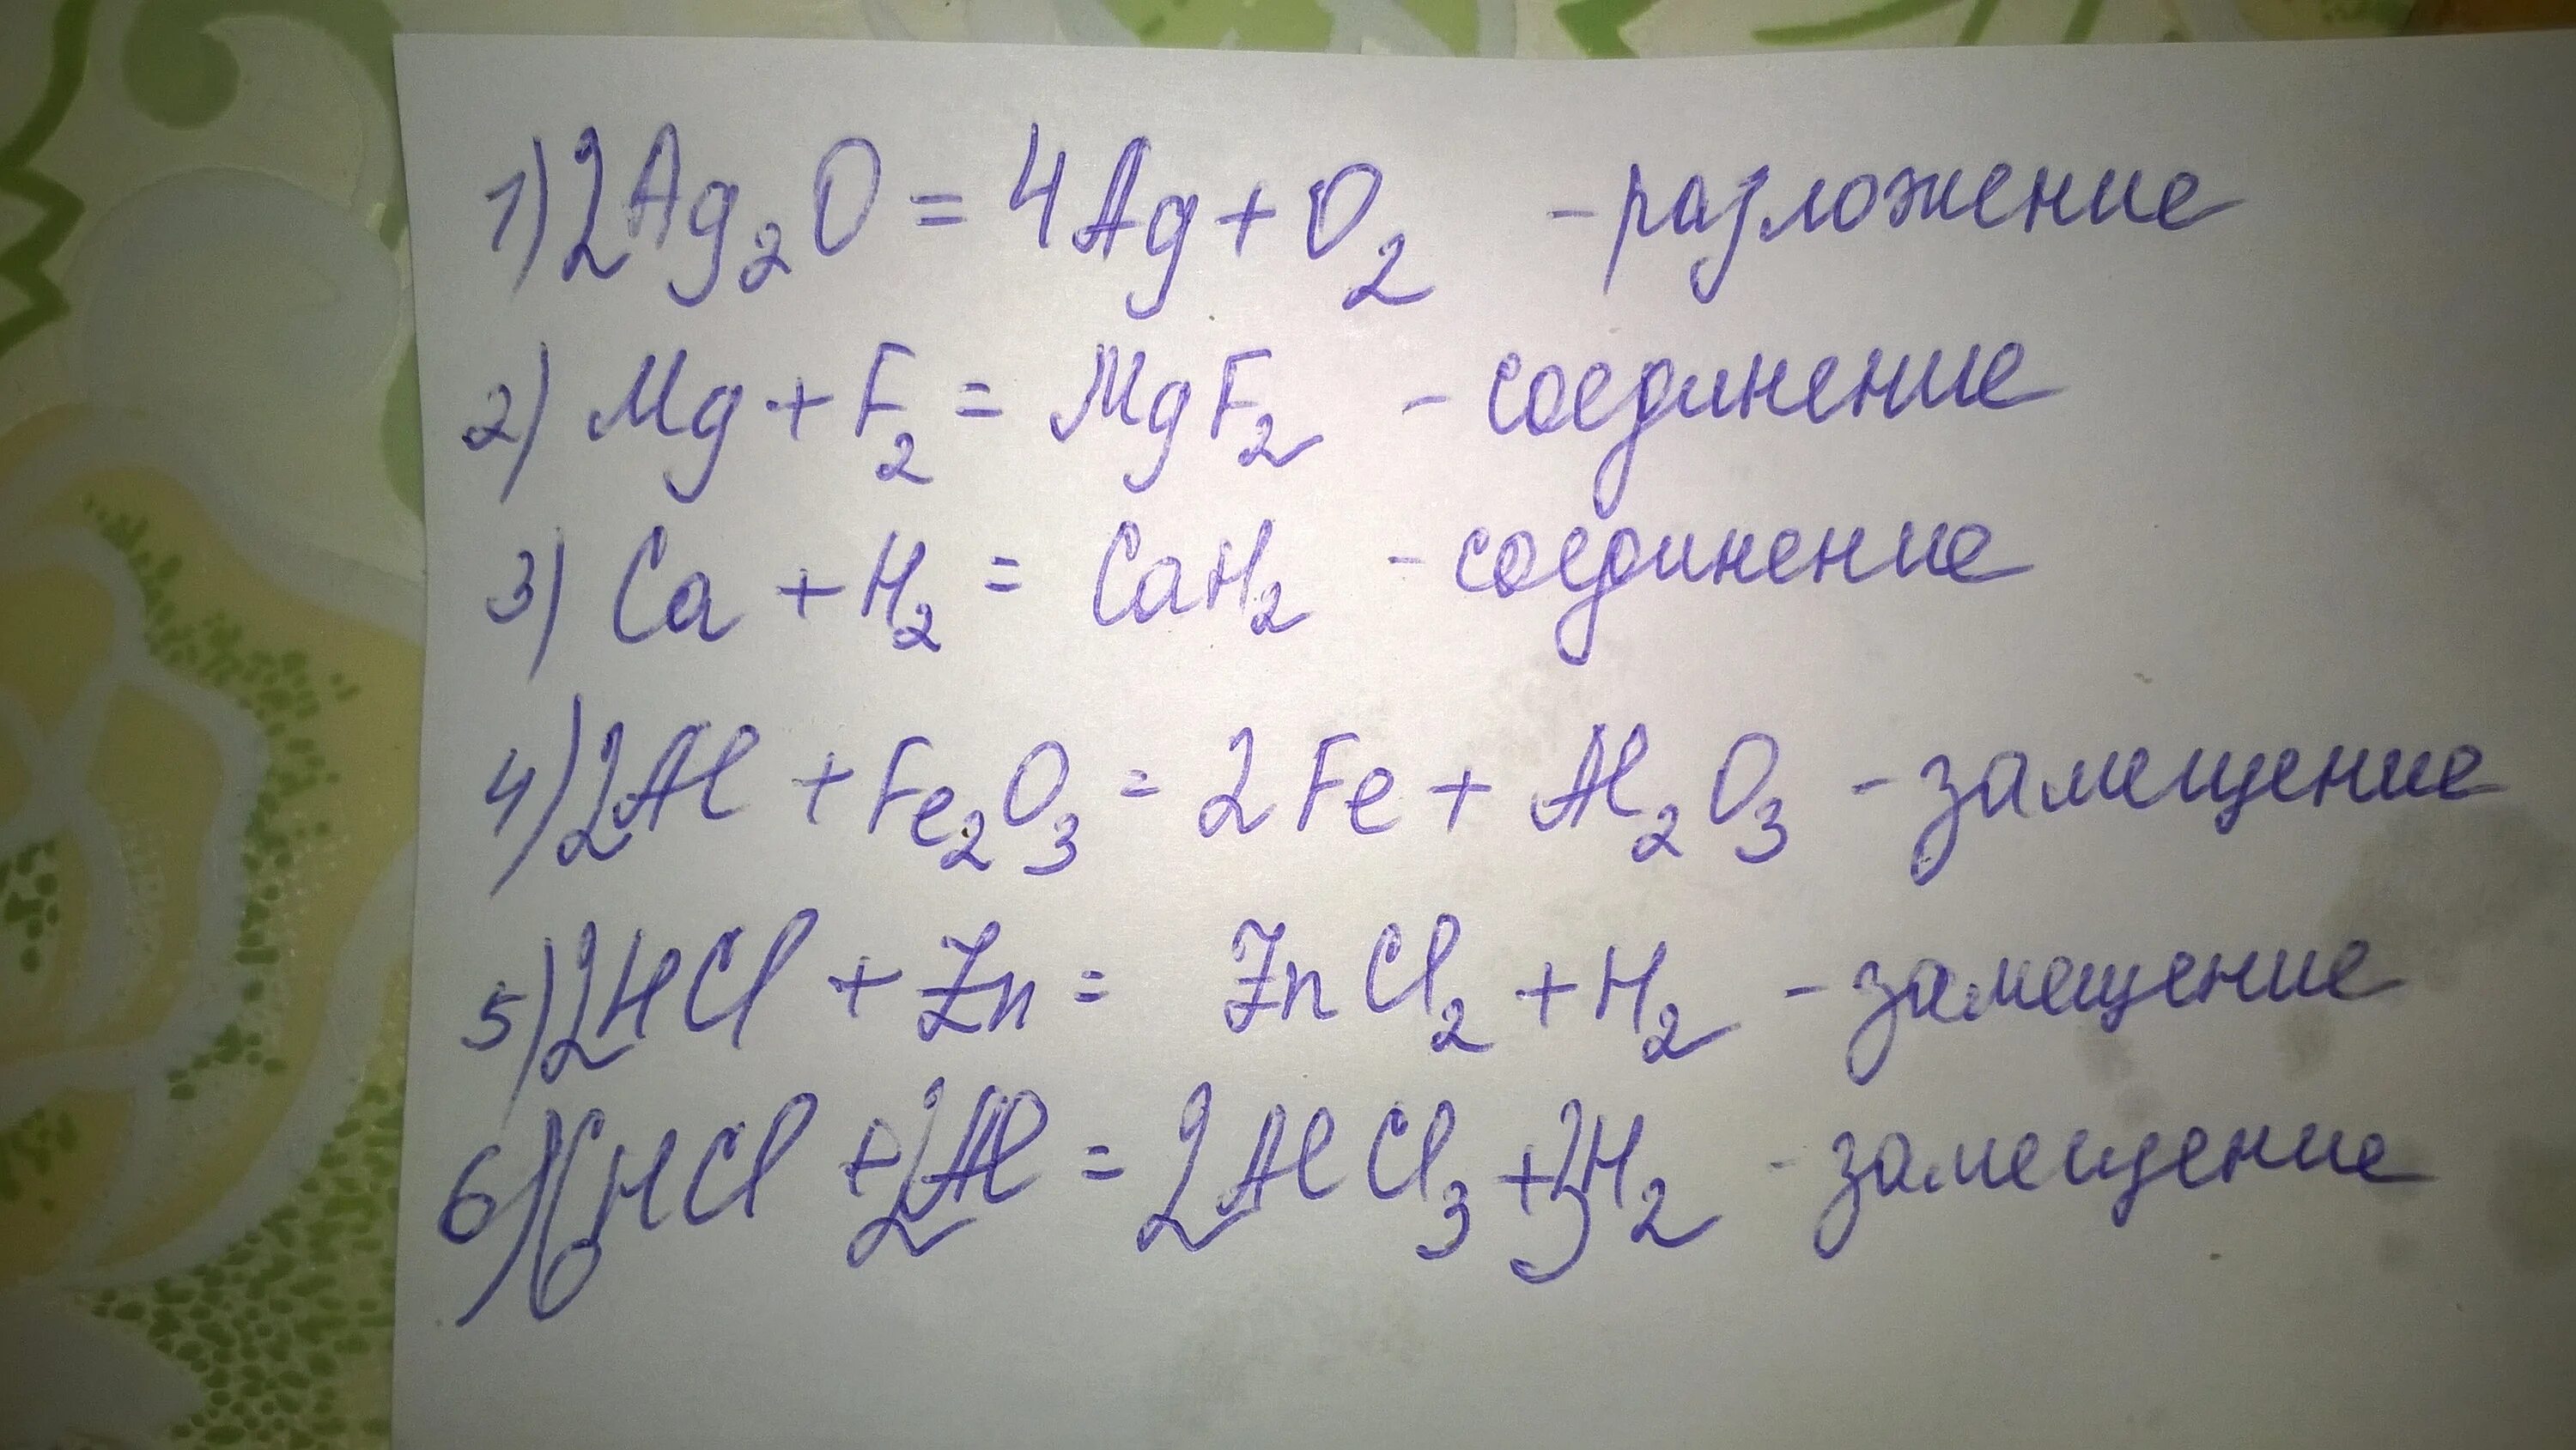 1) 2Ag₂O = 4Ag + O₂ - разложение
2) Mg + F₂ = MgF₂ - соединение
3) Ca + H₂ = CaH₂ - соединение
4) 2Al + Fe₂O₃ = 2Fe + Al₂O₃ - замещение
5) 2HCl + Zn = ZnCl₂ + H₂ - замещение
6) 6HCl + 2Al = 2AlCl₃ + 3H₂ - замещение